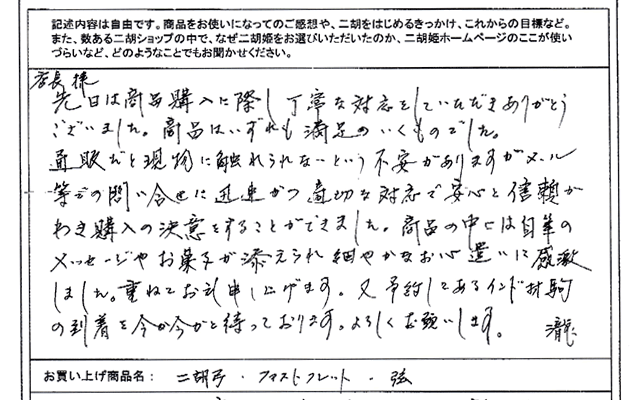 記述内容は自由です。商品をお使いになってのご感想や、二胡をはじめるきっかけ、これからの目標など。
また、数ある二胡ショップの中で、なぜ二胡姫をお選びいただいたのか、二胡姫ホームページのここが使い
づらいなど、どのようなことでもお聞かせください。
店長様
先日は商品購入に際し丁寧な対応をしていただきありがとう
ございました。商品はいずれも満足のいくものでした。
通販だと現物に触れられないという不安がありますがメール
等での問い合せに迅速かつ適切な対応で安心と信頼が
わき購入の決意をすることができました。商品の中には自筆の
メッセージやお菓子が添えられ細やかなお心遣いに感激
しました。重ねてお礼申し上げます。又予約してあるインド材駒
の到着を今か今かと待っております。よろしくお願いします。
お買い上げ商品名： 二胡弓・ファストフレット・弦